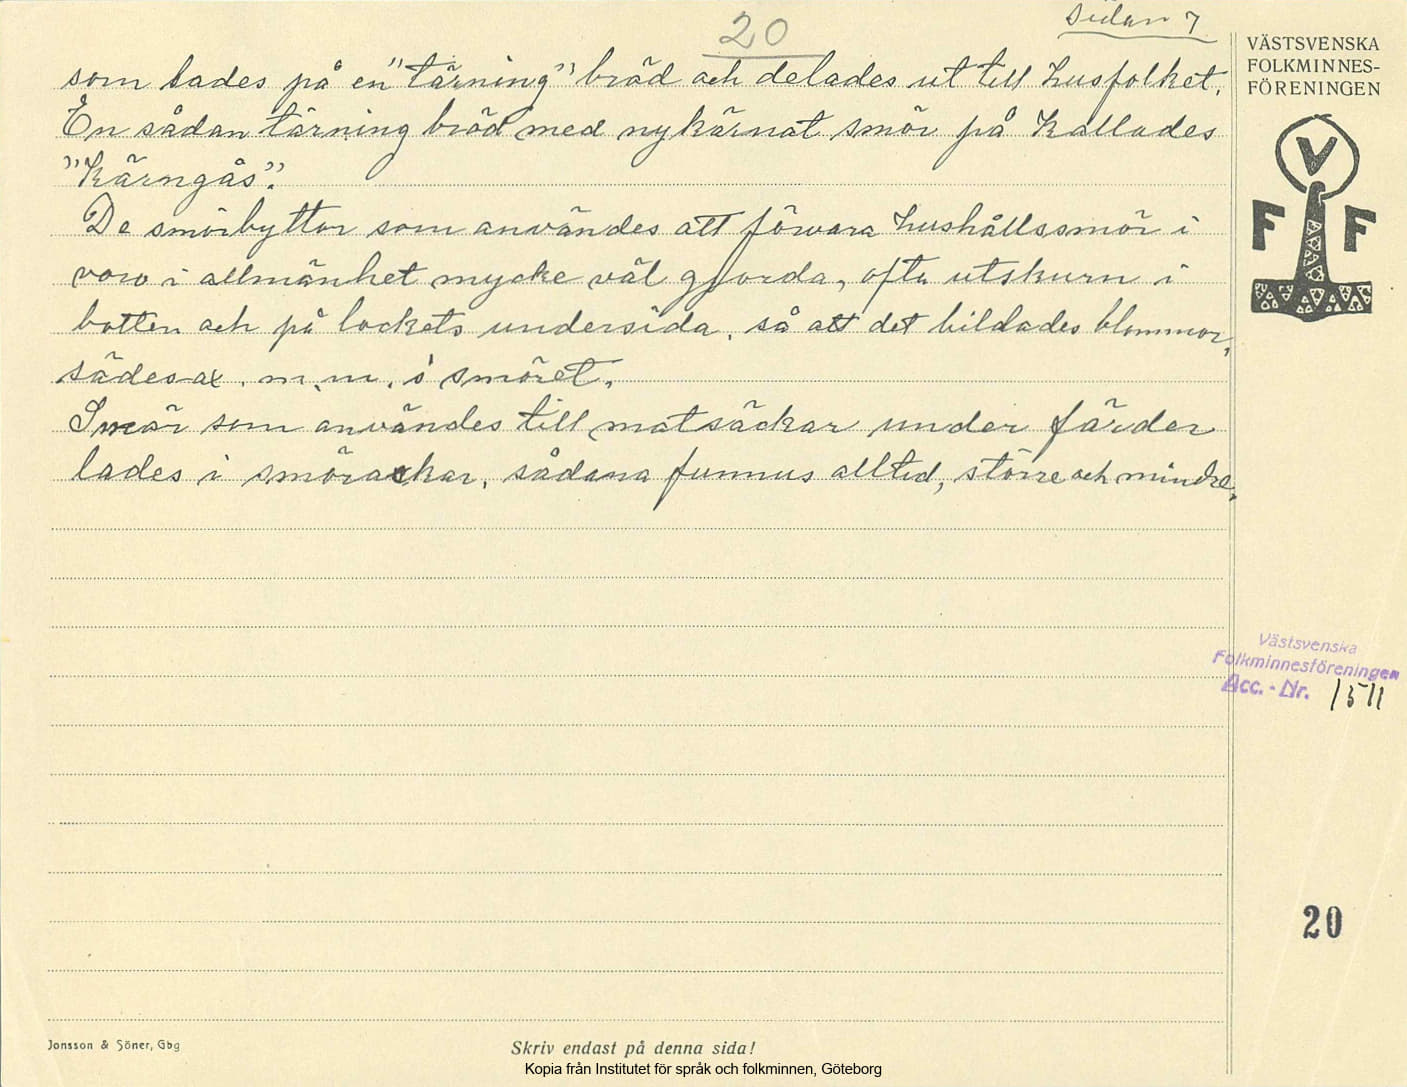 20
Sidan 7
som lades på en "tärning" bröd och delades ut till husfolket.
En sådan tärning bröd med nykärnat smör på kallades
"Kärngås".
De smörbyttor som användes att förvara hushållssmör i
voro i allmänhet mycke väl gjorda, ofta utskurn i
botten och på lockets undersida, så att det bildades blommor,
sädesax, m.m. i smöret.
Smör som användes till matsäckar under färder
lades i smörackar, sådana funnus alltid, större och mindre.
VÄSTSVENSKA
FOLKMINNES-
FÖRENINGEN
V
F F
Västsvenska
Folkminnesföreningen
Acc. - Nr. 1511
20
Jonsson & Söner, Gbg
Skriv endast på denna sida!
Kopia från Institutet för språk och folkminnen, Göteborg